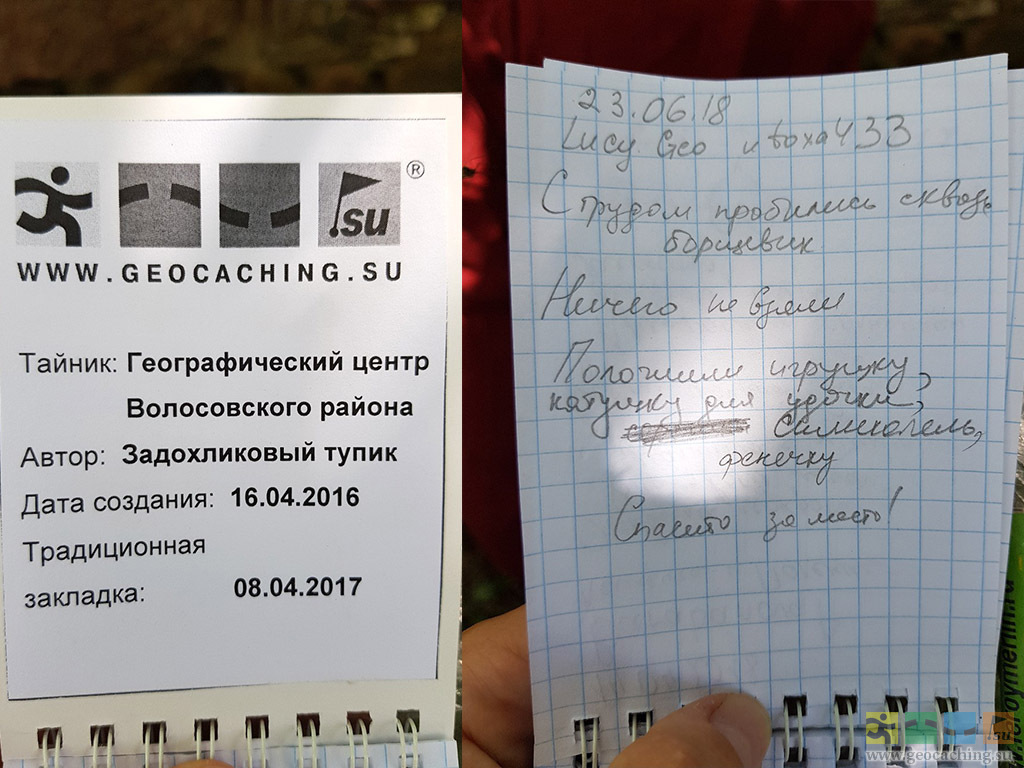 .su ®
WWW.GEOCACHING.SU
Тайник: Географический центр
Волосовского района
Автор: Задохликовый тупик
Дата создания: 16.04.2016
Традиционная
закладка: 08.04.2017
23.06.18
Lucy Geo и toxa433
С трудом пробились сквозь
борщевик
Ничего не взяли
Положили игрушку,
катушку для удочки,
силикагель,
фенечку
Спасибо за место!
.su
www.geocaching.su